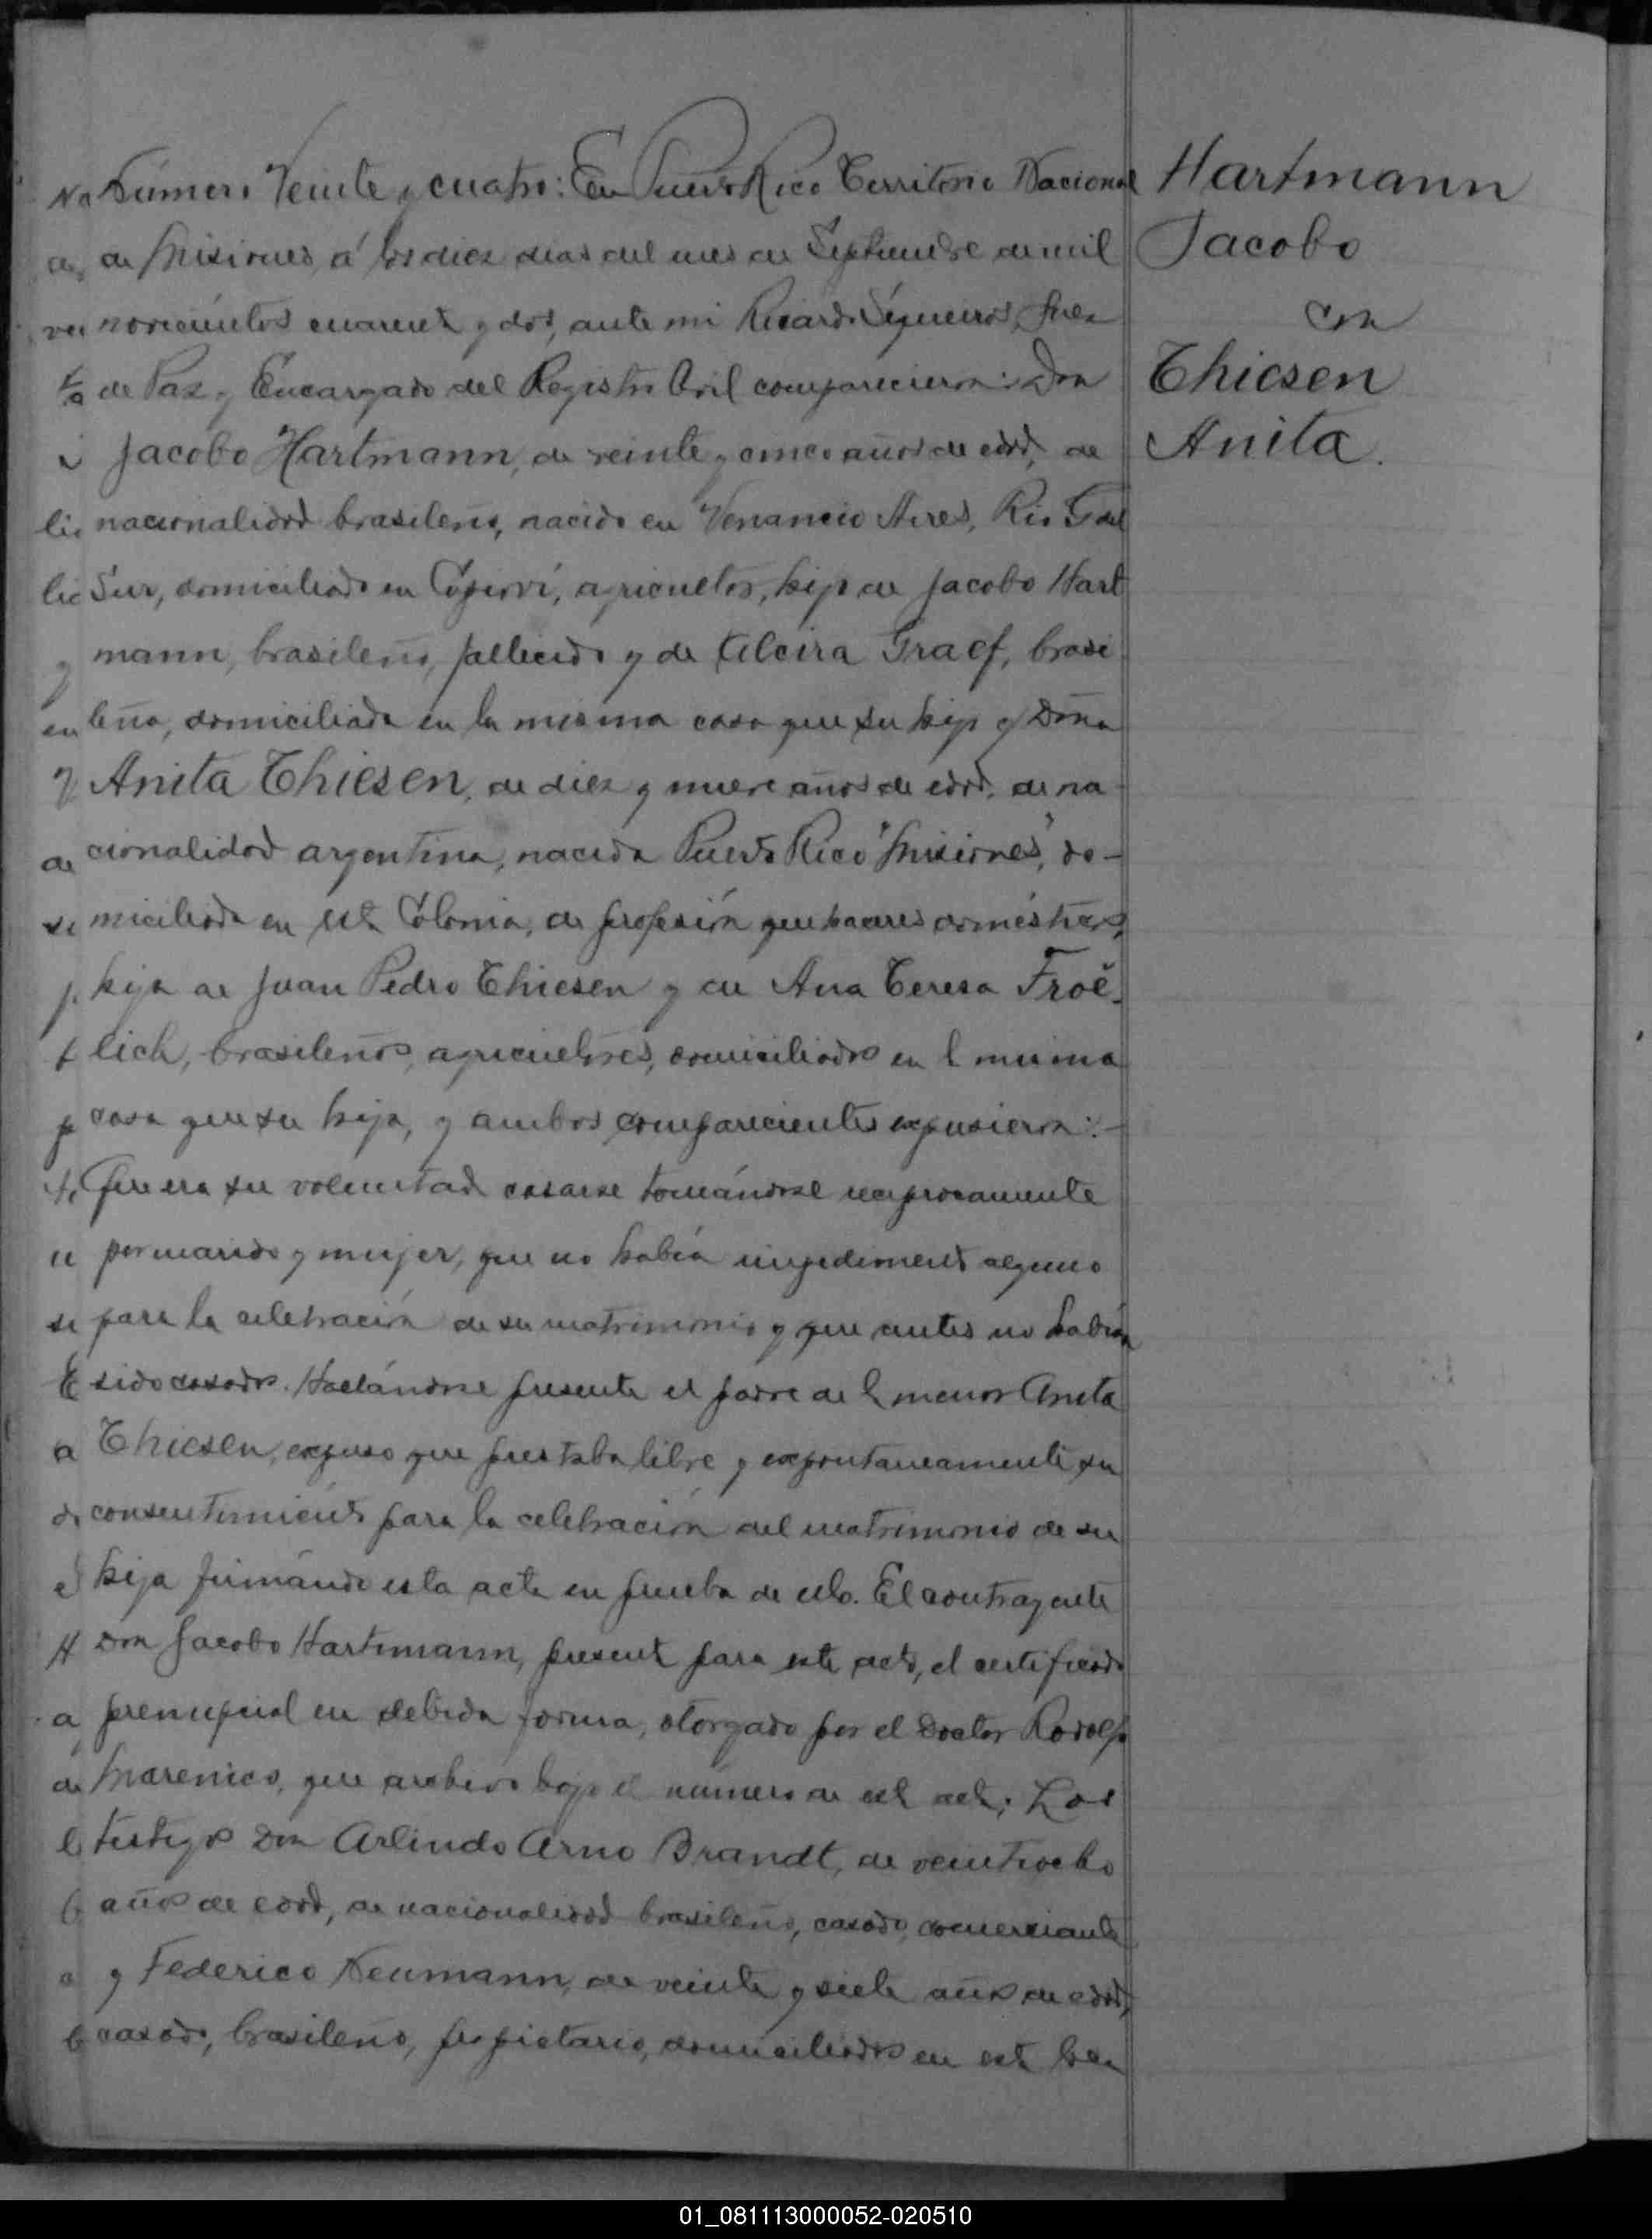 Número Veinte y cuatro: En Puerto Rico Territorio Nacional
de Misiones, á los diez dias del mes de Septiembre de mil
novecientos cuarenta y dos, ante mi Ricardo Sequeiros, Juez
de Paz y Encargado del Registro Civil comparecieron: Don
Jacobo Hartmann, de veinte y cinco años de edad, de
nacionalidad brasileño, nacido en Venancio Aires, Rio G. del
Sur, domiciliado en Capioví, agricultor, hijo de Jacobo Hart
mann, brasileño, fallecido y de Alcira Graef, brasi
leña, domiciliada en la misma casa que su hijo y Doña
Anita Thiesen, de diez y nueve años de edad, de na-
cionalidad argentina, nacida Puerto Rico "Misiones", do-
miciliada en esta Colonia, de profesión quehaceres domésticos,
hija de Juan Pedro Thiesen y de Ana Teresa Froë-
lich, brasileños, agricultores, domiciliados en la misma
casa que su hija, y ambos comparecientes expusieron:-
Que era su voluntad casarse tomándose reciprocamente
por marido y mujer, que no había impedimento alguno
para la celebración de su matrimonio y que antes no habían
sido casados. Hallándose presente el padre de la menor Anita
Thiesen, expuso que prestaba libre y expontaneamente su
consentimiento para la celebración del matrimonio de su
hija firmando esta acta en prueba de ello. El contrayente
Don Jacobo Hartmann, presentó para este acto, el certificado
prenupcial en debida forma, otorgado por el Doctor Rodolfo
que archivo bajo el número de esta acta; Los
testigos Don Arlindo Arno Brandt, de veintiocho
años de edad, de nacionalidad brasileño, casado, comerciante
y Federico Neumann, de veinte y siete años de edad,
casado, brasileño, propietario, domiciliados en esta
Hartmann
Jacobo
con
Thiesen
Anita.
01_081113000052-020510